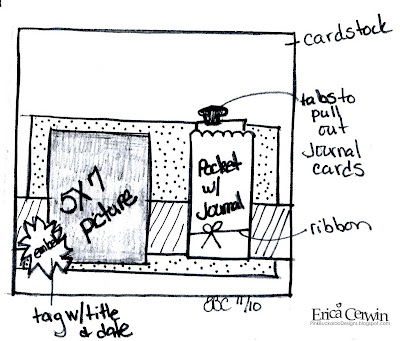 cardstock
tabs to
pull
out
Journal
cards
5X7
picture
Pocket
w/
Journal
ribbon
tag w/ title
& date
EBC 11/10
Erica Cerwin
PinkBuckarooDesigns.blogspot.com